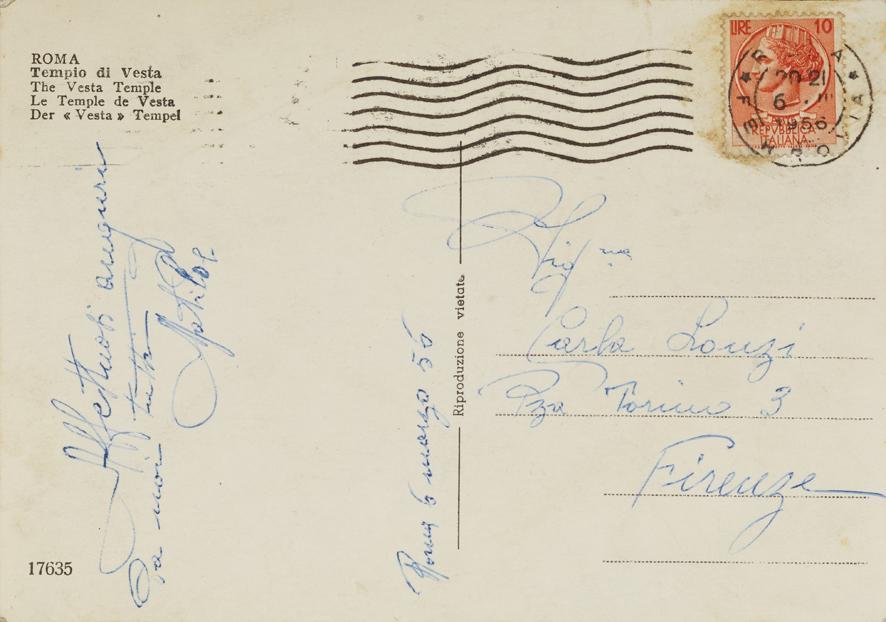 ROMA
Tempio di Vesta
The Vesta Temple
Le Temple de Vesta
Der « Vesta » Tempel
LIRE 10
REPVBBLICA
ITALIANA
20-21
6
1956
Affettuosi auguri
da noi tutti
Matilde
Roma 6 marzo 56
Riproduzione vietata
Sig.na
Carla Lonzi
Pza Torino 3
Firenze
17635